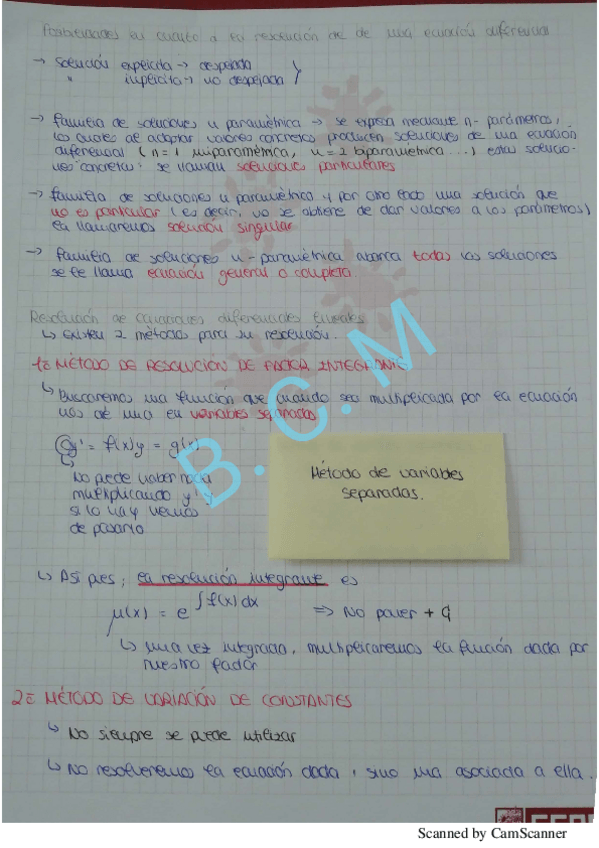 Posibilidades en cuanto a la resolución de de una ecuación diferencial
→ solución explícita → despejada
" implícita → no despejada
→ familia de soluciones n paramétrica → se expresa mediante n-parámetros,
los cuales al adoptar valores concretos producen soluciones de una ecuación
diferencial (n=1 uniparamétrica, n=2 biparamétrica...) estas solucio-
nes concretas se llaman soluciones particulares
→ familia de soluciones n paramétrica y por otro lado una solución que
no es particular (es decir, no se obtiene de dar valores a los parámetros)
la llamaremos solución singular
→ familia de soluciones n-paramétrica abarca todas las soluciones
se le llama ecuación general o completa
Resolución de ecuaciones diferenciales lineales
↳ Existen 2 métodos para su resolución.
1º MÉTODO DE RESOLUCIÓN DE FACTOR INTEGRANTE
↳ Buscaremos una función que cuando sea multiplicada por la ecuación
nos dé una en variables separadas
y' = f(x)y = g(x)
No puede haber nada
multiplicando y' y
si lo hay hemos
de pasarlo
Método de variables
separadas.
↳ Así pues, la resolución integrante es
μ(x) = e^∫f(x)dx ⇒ No poner + C
↳ una vez integrada, multiplicaremos la función dada por
nuestro factor
2º MÉTODO DE VARIACIÓN DE CONSTANTES
↳ No siempre se puede utilizar
↳ No resolveremos la ecuación dada, sino una asociada a ella.
B.C.M
Scanned by CamScanner